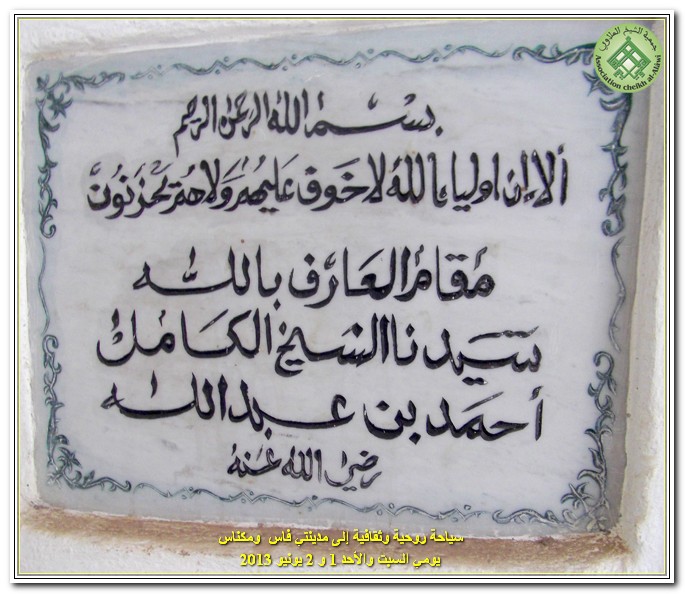 جمعية الشيخ العلاوي
Association cheikh al-Alawi
بسم الله الرحمن الرحيم
ألا إن اولياء الله لا خوف عليهم ولا هم يحزنون
مقام العارف بالله
سيدنا الشيخ الكامل
أحمد بن عبد الله
رضي الله عنه
سياحة روحية وثقافية إلى مدينتي فاس ومكناس
يومي السبت والأحد 1 و 2 يونيو 2013